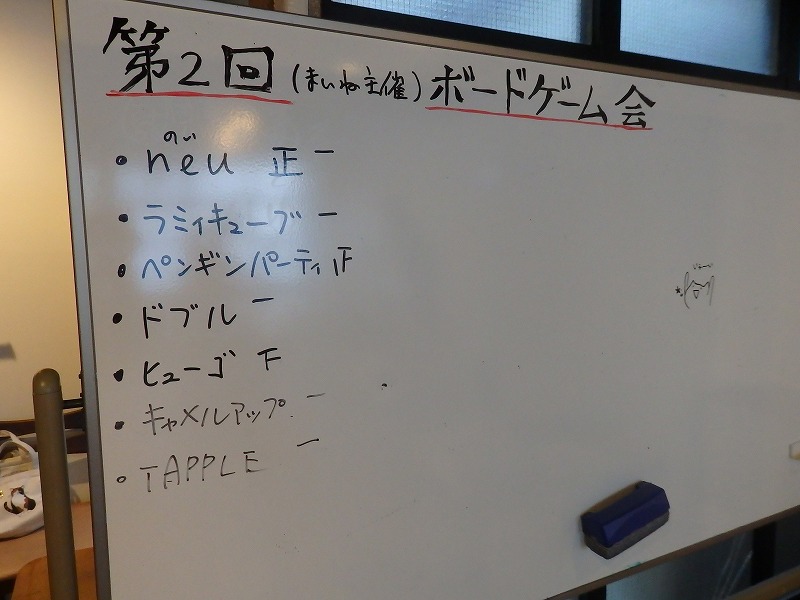 第2回 (まいね主催) ボードゲーム会
のい
・neu 正一
・ラミィキューブ 一
・ペンギンパーティ 正
・ドブル 一
・ヒューゴ 下
・キャメルアップ. 一
・TAPPLE 一